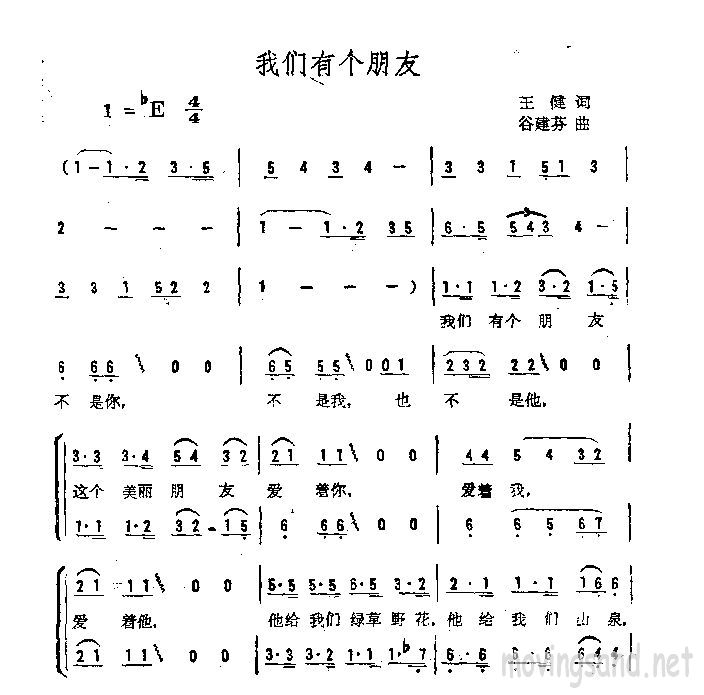 我们有个朋友
1 = ♭E 4/4
王 健 词
谷建芬 曲
(1 - 1·2 3·5 | 5 4 3 4 - | 3 3 1 5 1 3 |
2 - - - | 1 - 1·2 3 5 | 6·5 5 4 3 4 - |
3 3 1 5 2 2 | 1 - - - ) | 1·1 1·2 3·2 1·5 |
我们 有个 朋 友
6 6 6 \ 0 0 | 6 5 5 5 \ 0 0 0 1 | 2 3 2 2 2 \ 0 0 |
不 是你, 不 是我, 也 不 是他,
3·3 3·4 5 4 3 2 | 2 1 1 1 \ 0 0 | 4 4 5 4 3 2 |
这个 美丽 朋 友 爱 着你, 爱着 我,
1·1 1·2 3 2· 1 5 | 6 6 6 \ 0 0 | 6 6 5 6 7 |
2 1 1 1 \ 0 0 | 5·5 5·5 6·5 3·2 | 2·1 1·1 1 6 6 |
爱 着他, 他给 我们 绿草 野花, 他 给 我 们 山 泉,
2 1 1 1 \ 0 0 | 3·3 3·2 1·1 1·♭7 | 6·6 6·6 5 6 6 |
movingsand.net